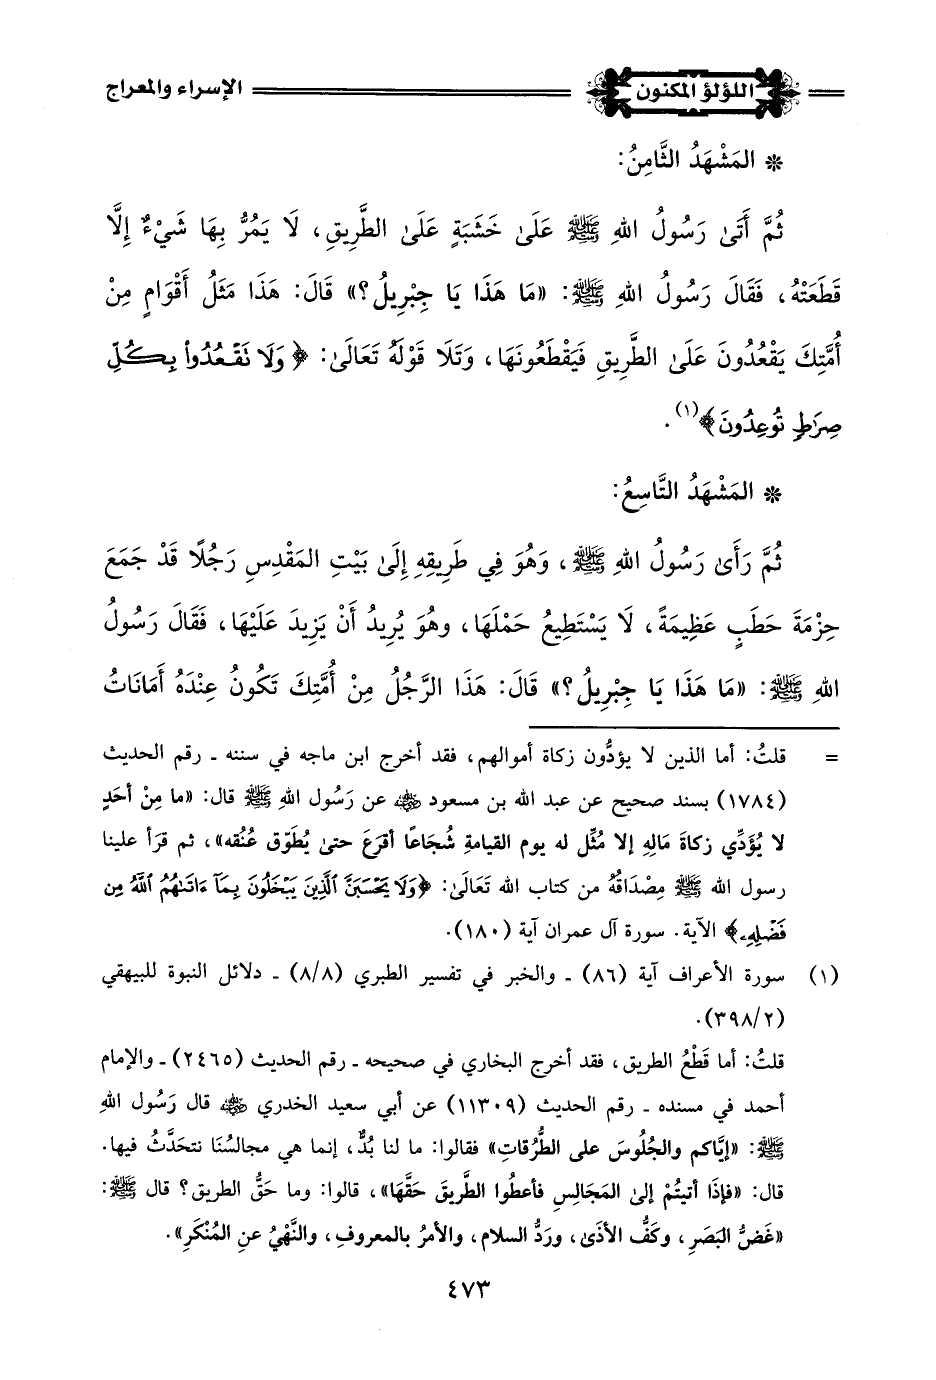 اللؤلؤ المكنون الإسراء والمعراج
* المَشْهَدُ الثَّامِنُ:
ثُمَّ أَتَىٰ رَسُولُ اللهِ ﷺ عَلَىٰ خَشَبَةٍ عَلَىٰ الطَّرِيقِ، لَا يَمُرُّ بِهَا شَيْءٌ إِلَّا
قَطَعَتْهُ، فَقَالَ رَسُولُ اللهِ ﷺ: «مَا هَذَا يَا جِبْرِيلُ؟» قَالَ: هَذَا مَثَلُ أَقْوَامٍ مِنْ
أُمَّتِكَ يَقْعُدُونَ عَلَىٰ الطَّرِيقِ فَيَقْطَعُونَهَا، وَتَلَا قَوْلَهُ تَعَالَىٰ: ﴿وَلَا نَقْعُدُوا۟ بِكُلِّ
صِرَٰطٍ تُوعِدُونَ﴾(١).
* المَشْهَدُ التَّاسِعُ:
ثُمَّ رَأَىٰ رَسُولُ اللهِ ﷺ، وَهُوَ فِي طَرِيقِهِ إِلَىٰ بَيْتِ المَقْدِسِ رَجُلًا قَدْ جَمَعَ
حِزْمَةَ حَطَبٍ عَظِيمَةً، لَا يَسْتَطِيعُ حَمْلَهَا، وهُوَ يُرِيدُ أَنْ يَزِيدَ عَلَيْهَا، فَقَالَ رَسُولُ
اللهِ ﷺ: «مَا هَذَا يَا جِبْرِيلُ؟» قَالَ: هَذَا الرَّجُلُ مِنْ أُمَّتِكَ تَكُونُ عِنْدَهُ أَمَانَاتُ
= قلتُ: أما الذين لا يؤدُّون زكاة أموالهم، فقد أخرج ابن ماجه في سننه ـ رقم الحديث
(١٧٨٤) بسند صحيح عن عبد الله بن مسعود رضي الله عنه عن رَسُول اللهِ ﷺ قال: «ما مِنْ أحَدٍ
لا يُؤَدِّي زكاةَ مَالِهِ إلا مُثِّل له يوم القيامةِ شُجَاعًا أقرَعَ حتىٰ يُطَوّق عُنُقه»، ثم قرَأ علينا
رسول الله ﷺ مِصْدَاقُهُ من كتاب الله تَعَالَىٰ: ﴿وَلَا يَحْسَبَنَّ ٱلَّذِينَ يَبْخَلُونَ بِمَآ ءَاتَىٰهُمُ ٱللَّهُ مِن
فَضْلِهِۦ﴾ الآية. سورة آل عمران آية (١٨٠).
(١) سورة الأعراف آية (٨٦) ـ والخبر في تفسير الطبري (٨/٨) ـ دلائل النبوة للبيهقي
(٣٩٨/٢).
قلتُ: أما قَطْعُ الطريق، فقد أخرج البخاري في صحيحه ـ رقم الحديث (٢٤٦٥) ـ والإمام
أحمد في مسنده ـ رقم الحديث (١١٣٠٩) عن أبي سعيد الخدري رضي الله عنه قال رَسُول اللهِ
ﷺ: «إيَّاكم والجُلُوسَ على الطُّرُقاتِ» فقالوا: ما لنا بُدٌّ، إنما هي مجالسُنَا نتحَدَّثُ فيها.
قال: «فإذَا أتيتُمْ إلىٰ المَجَالِسِ فأعطُوا الطَّرِيقَ حَقَّهَا»، قالوا: وما حَقُّ الطريق؟ قال ﷺ:
«غَضُّ البَصَرِ، وكَفُّ الأذىٰ، ورَدُّ السلام، والأمرُ بالمعروفِ، والنَّهْيُ عنِ المُنْكَرِ».
٤٧٣